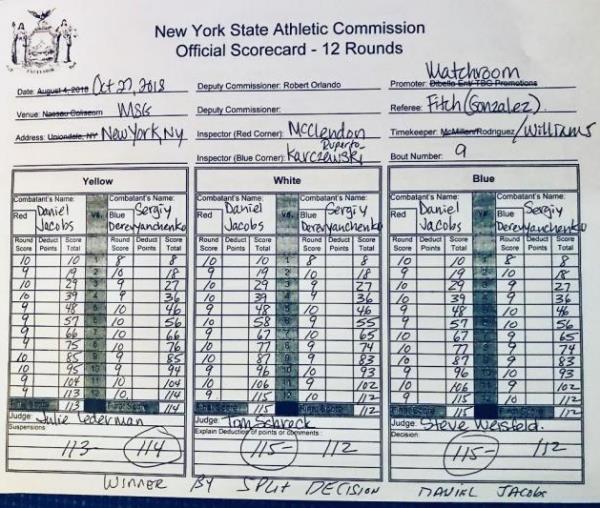 New York State Athletic Commission
Official Scorecard - 12 Rounds
Date: August 4, 2018 Oct 27, 2018
Venue: Nassau Coliseum MSG
Address: Uniondale, NY New York, NY
Deputy Commissioner: Robert Orlando
Deputy Commissioner:
Inspector (Red Corner): McClendon
Inspector (Blue Corner): Ruperto-Karczewski
Matchroom
Promoter: Dibella Ent/TBC Promotions
Referee: Fitch (Gonzalez)
Timekeeper: McMillen/Rodriguez/Williams
Bout Number: 9
Yellow
Combatant's Name: Combatant's Name:
Red Daniel Jacobs vs. Blue Sergiy Derevyanchenko
Round Score Deduct Points Score Total Round Score Deduct Points Score Total
10 10 1 8 8
9 19 2 10 18
10 29 3 9 27
10 39 4 9 36
9 48 5 10 46
9 57 6 10 56
9 66 7 10 66
9 75 8 10 76
10 85 9 9 85
10 95 10 9 94
9 104 11 10 104
9 113 12 10 114
Final Score 113 Final Score 114
Judge: Julie Lederman
Suspensions
113- 114
White
Combatant's Name: Combatant's Name:
Red Daniel Jacobs vs. Blue Sergiy Derevyanchenko
Round Score Deduct Points Score Total Round Score Deduct Points Score Total
10 10 1 8 8
9 19 2 10 18
10 29 3 9 27
10 39 4 9 36
9 48 5 10 46
10 58 6 9 55
9 67 7 10 65
10 77 8 9 74
10 87 9 9 83
9 96 10 10 93
10 106 11 9 102
9 115 12 10 112
Final Score 115 Final Score 112
Judge: Tom Schreck
Explain Deduction of points or comments
115- 112
Blue
Combatant's Name: Combatant's Name:
Red Daniel Jacobs vs. Blue Sergiy Derevyanchenko
Round Score Deduct Points Score Total Round Score Deduct Points Score Total
10 10 1 8 8
9 19 2 10 18
10 29 3 9 27
10 39 4 9 36
9 48 5 10 46
9 57 6 10 56
10 67 7 9 65
10 77 8 9 74
10 87 9 9 83
9 96 10 10 93
10 106 11 9 102
9 115 12 10 112
Final Score 115 Final Score 112
Judge: Steve Weisfeld.
Decision
115- 112
WINNER BY SPLIT DECISION DANIEL JACOBS